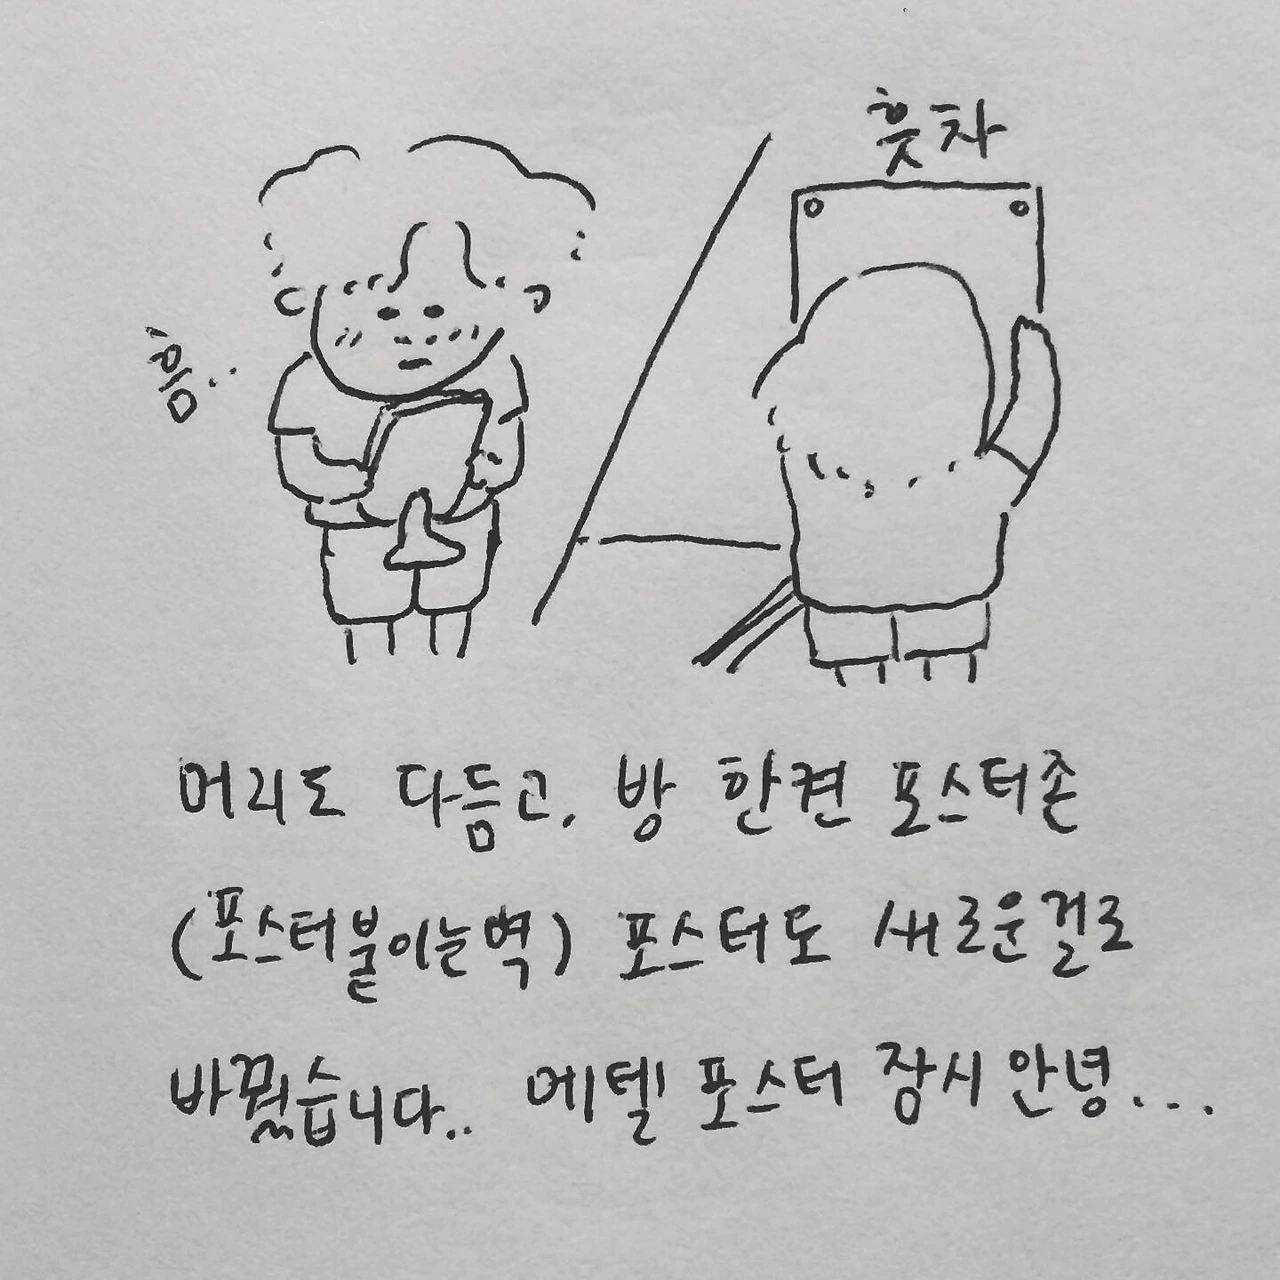 흠..
흣차
머리도 다듬고, 방 한켠 포스터존
(포스터붙이는벽) 포스터도 새로운걸로
바꿨습니다.. 에텔 포스터 잠시 안녕...